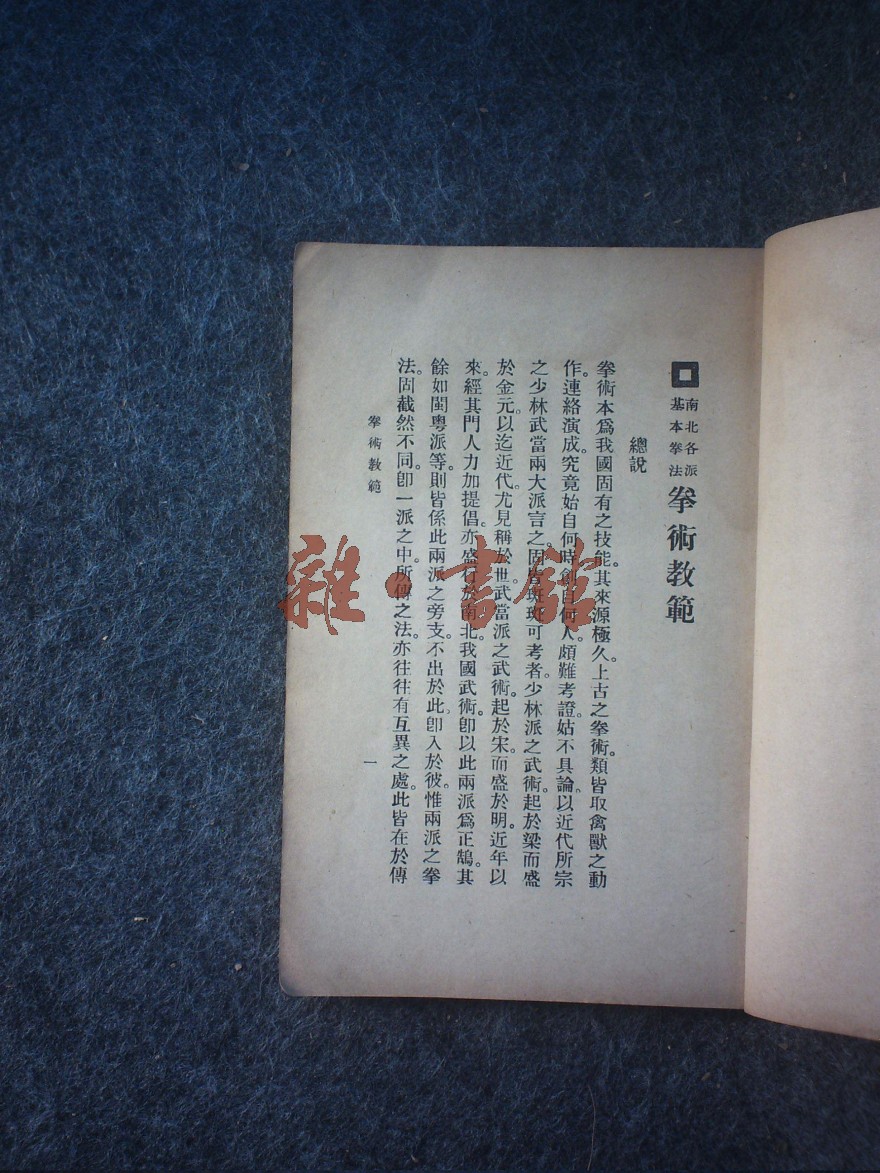 南北各派
基本拳法
拳術教範
總說
拳術本爲我國固有之技能。其來源極久。上古之拳術。類皆取禽獸之動
作。連絡演成。究竟始自何時。創自何人。頗難考證。姑不具論。以近代所宗
之少林武當兩大派言之。固皆斑斑可考者。少林派之武術。起於梁而盛
於金元。以迄近代。尤見稱於世。武當派之武術。起於宋。而盛於明。近年以
來。經其門人力加提倡。亦盛行於南北。我國武術。卽以此兩派爲正鵠。其
餘如閩粵派等。則皆係此兩派之旁支。不出於此。卽入於彼。惟兩派之拳
法。固截然不同。卽一派之中。所傳之法。亦往往有互異之處。此皆在於傳
拳術教範
一
雜·書館